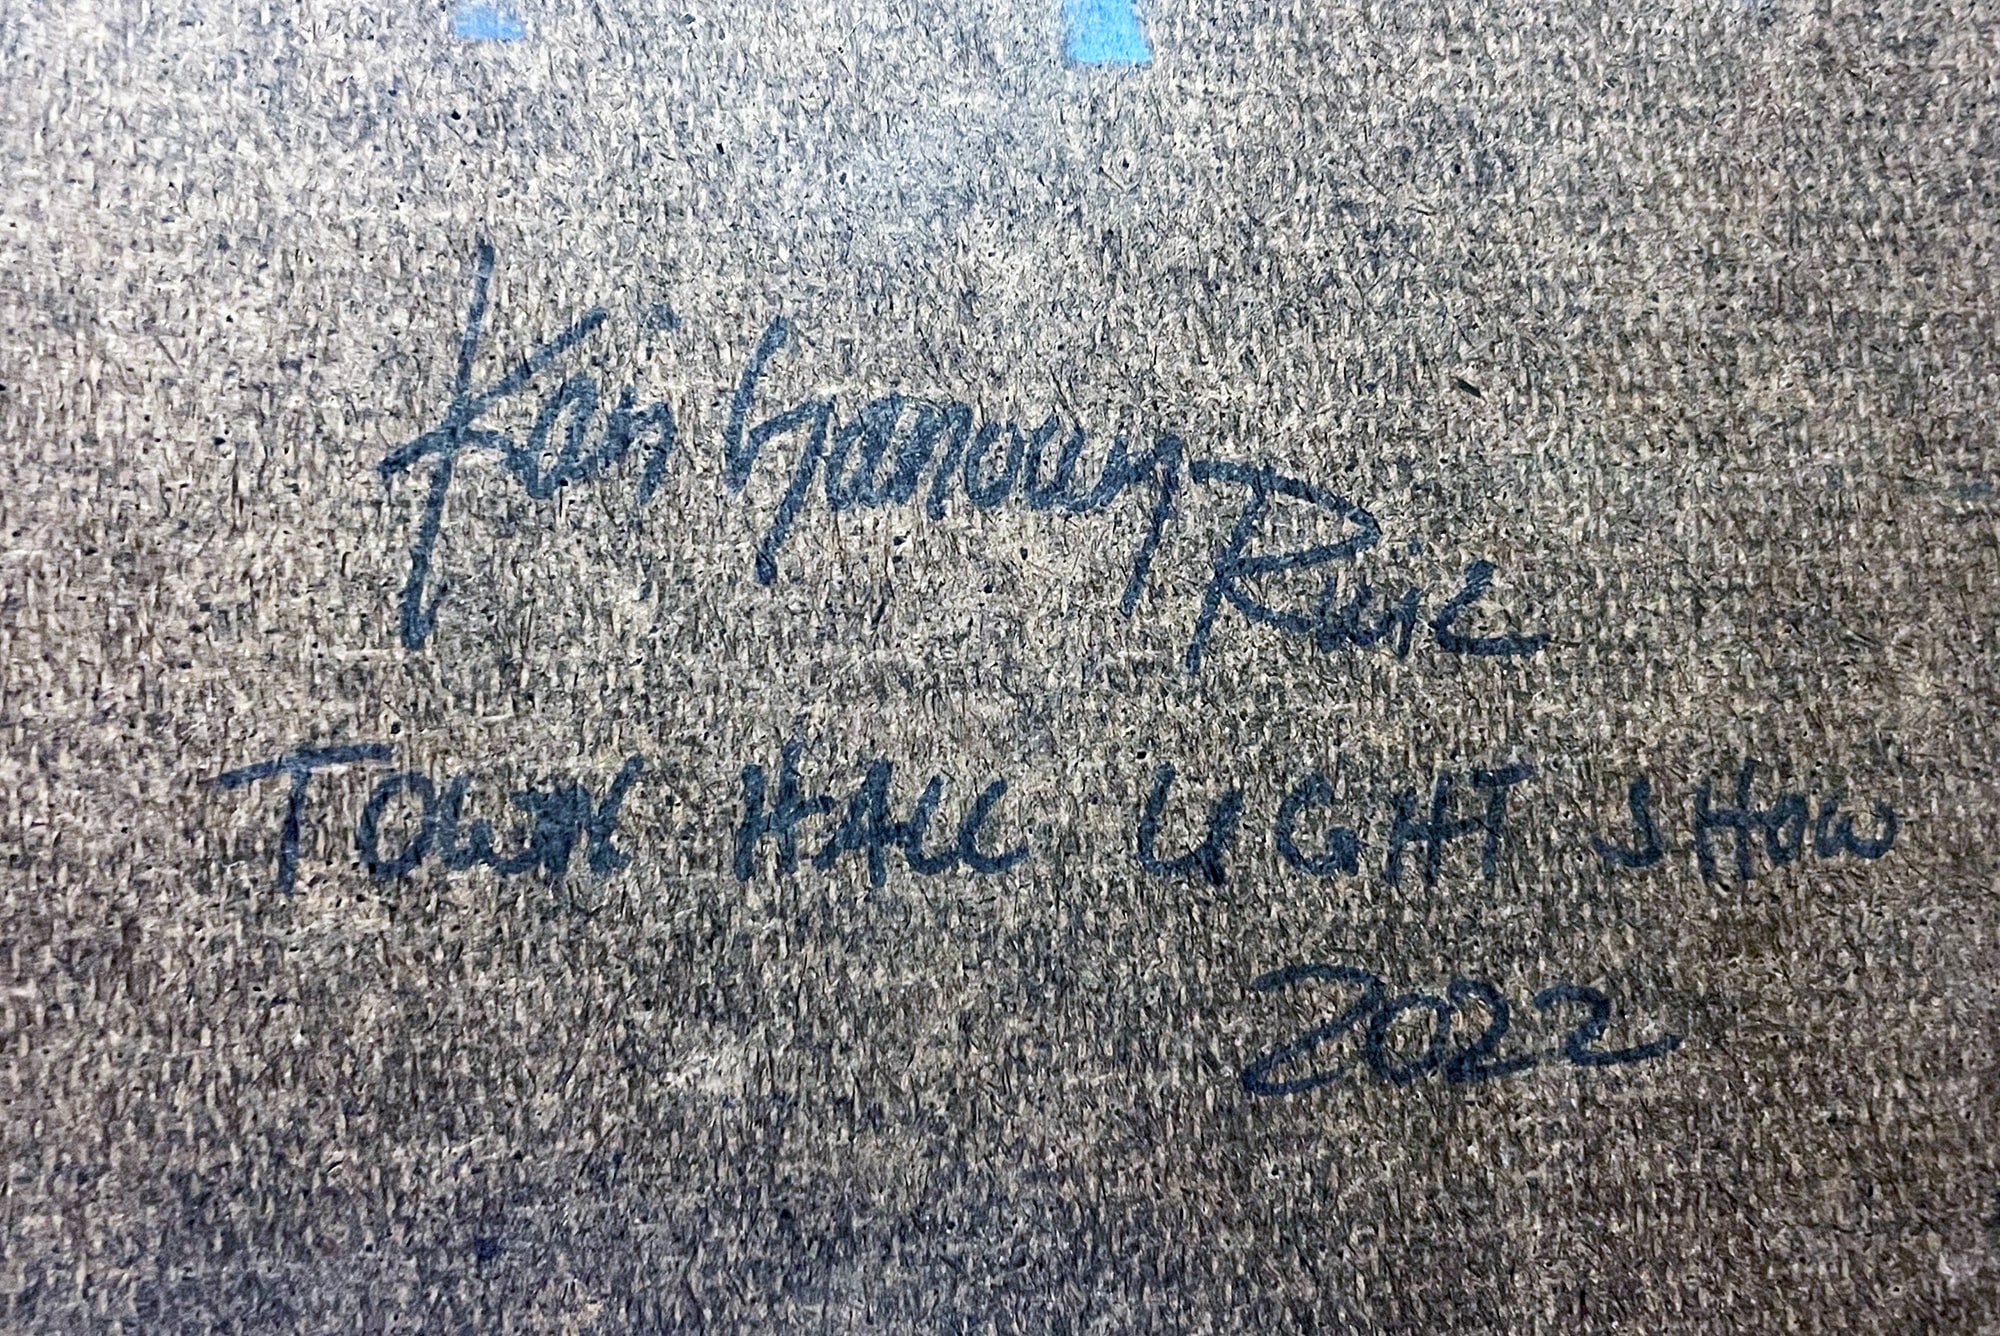 Kai Ganoung Ruiz
TOWN HALL LIGHT SHOW
2022